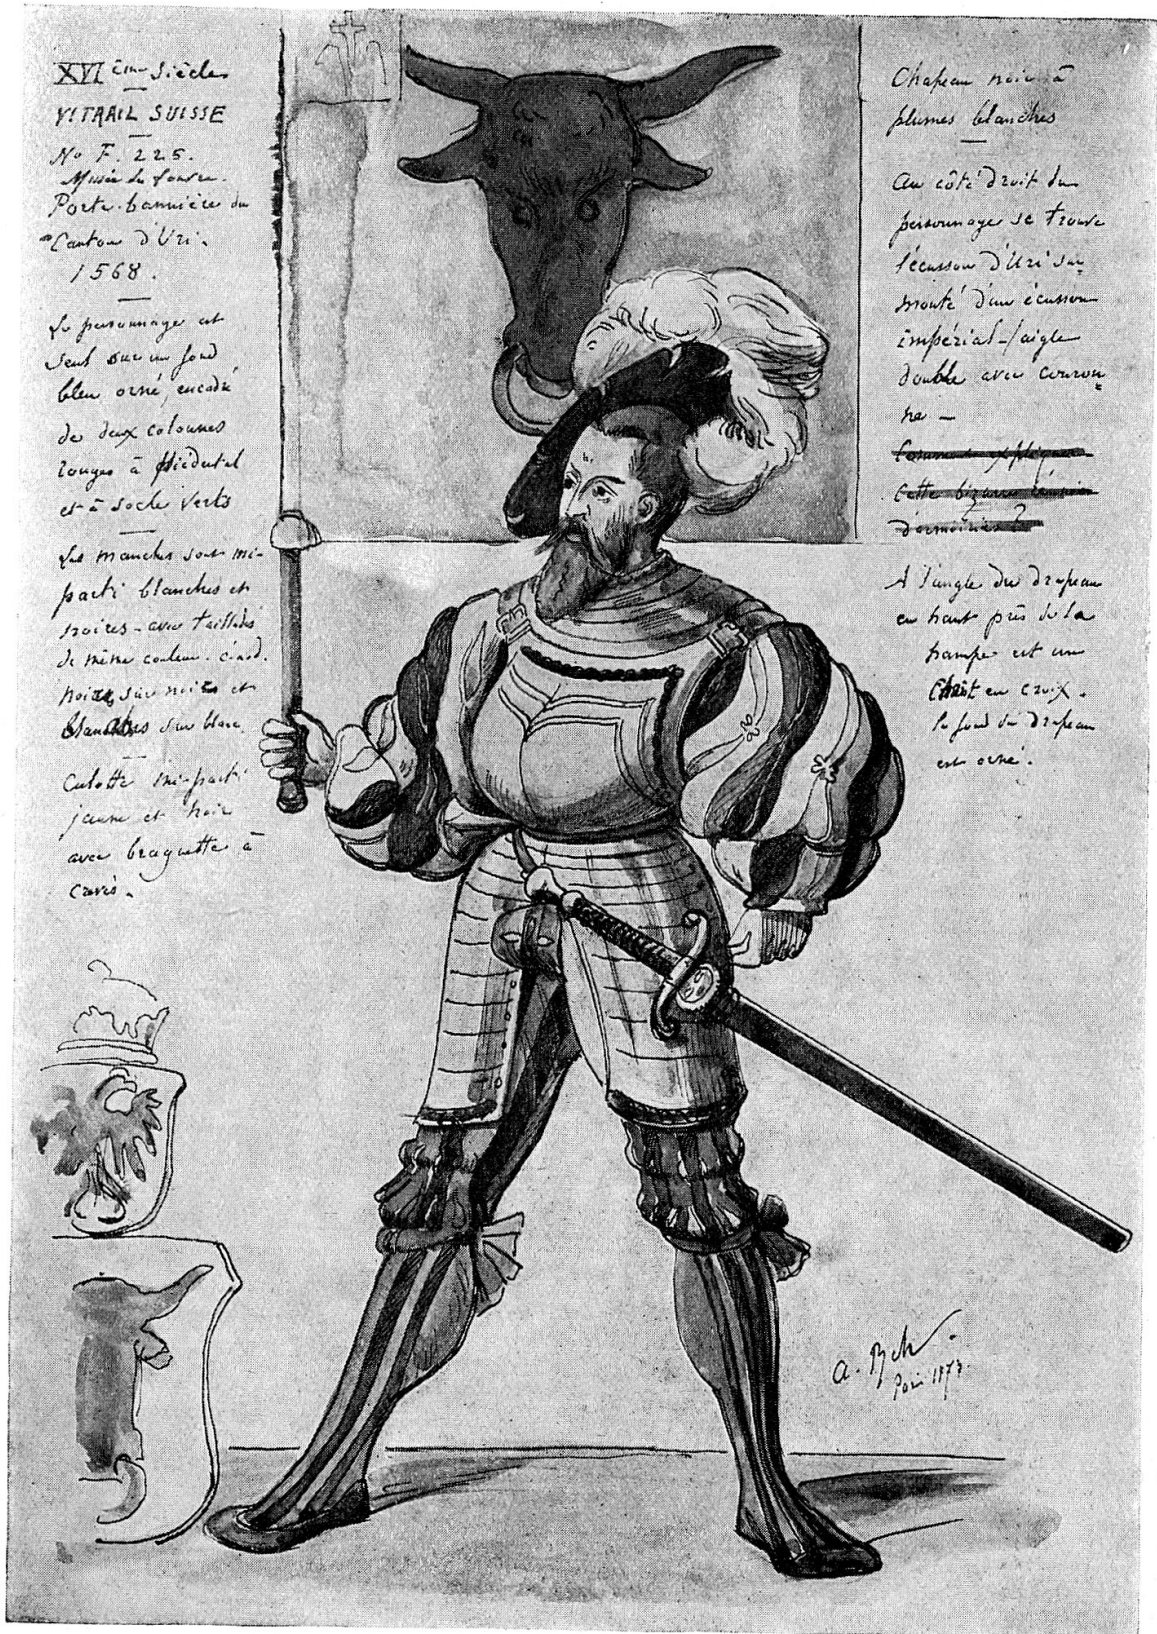 XVI ème Siècle
VITRAIL SUISSE
No F. 225.
Musée du Louvre.
Porte-bannière du
Canton d'Uri.
1568.
Le personnage est
seul sur un fond
bleu orné, encadré
de deux colonnes
rouges à piédestal
et à socle verts
Les manches sont mi-
parti blanches et
noires - avec taillades
de même couleur. c.à.d.
noires sur noires et
blanches sur blanc.
Culotte mi-parti
jaune et noir
avec braguette à
crevés.
Chapeau noir à
plumes blanches
Au côté droit du
personnage se trouve
l'écusson d'Uri sur
monté d'un écusson
impérial - / aigle
double avec couron
ne -
Comment expliquer
Cette bizarre réunion
d'armoiries ?
A l'angle du drapeau
en haut près de la
hampe est un
Christ en croix.
le fond du drapeau
est orné.
a.
Paris 1873.